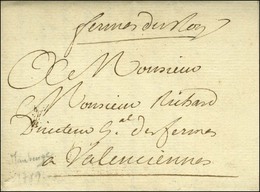 fermes du Roy
A Monsieur
Monsieur Richard
Directeur G.al des fermes
a Valenciennes